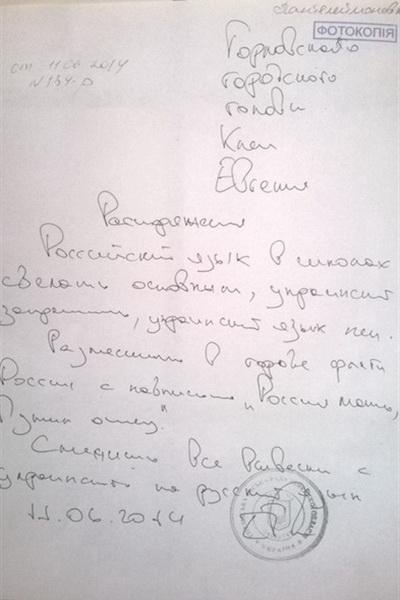 ФОТОКОПІЯ
от 11 06 2014
N 134-D
Горловского
городского
головы
Клеп
Евгения
Распоряжение
Российский язык в школах
сделать основным, украинский
запретить, украинский язык
Разместить в городе флаги
России с надписью "Россия мать,
Путин отец."
Сменить все вывески с
украинского на русский язык
11.06.2014